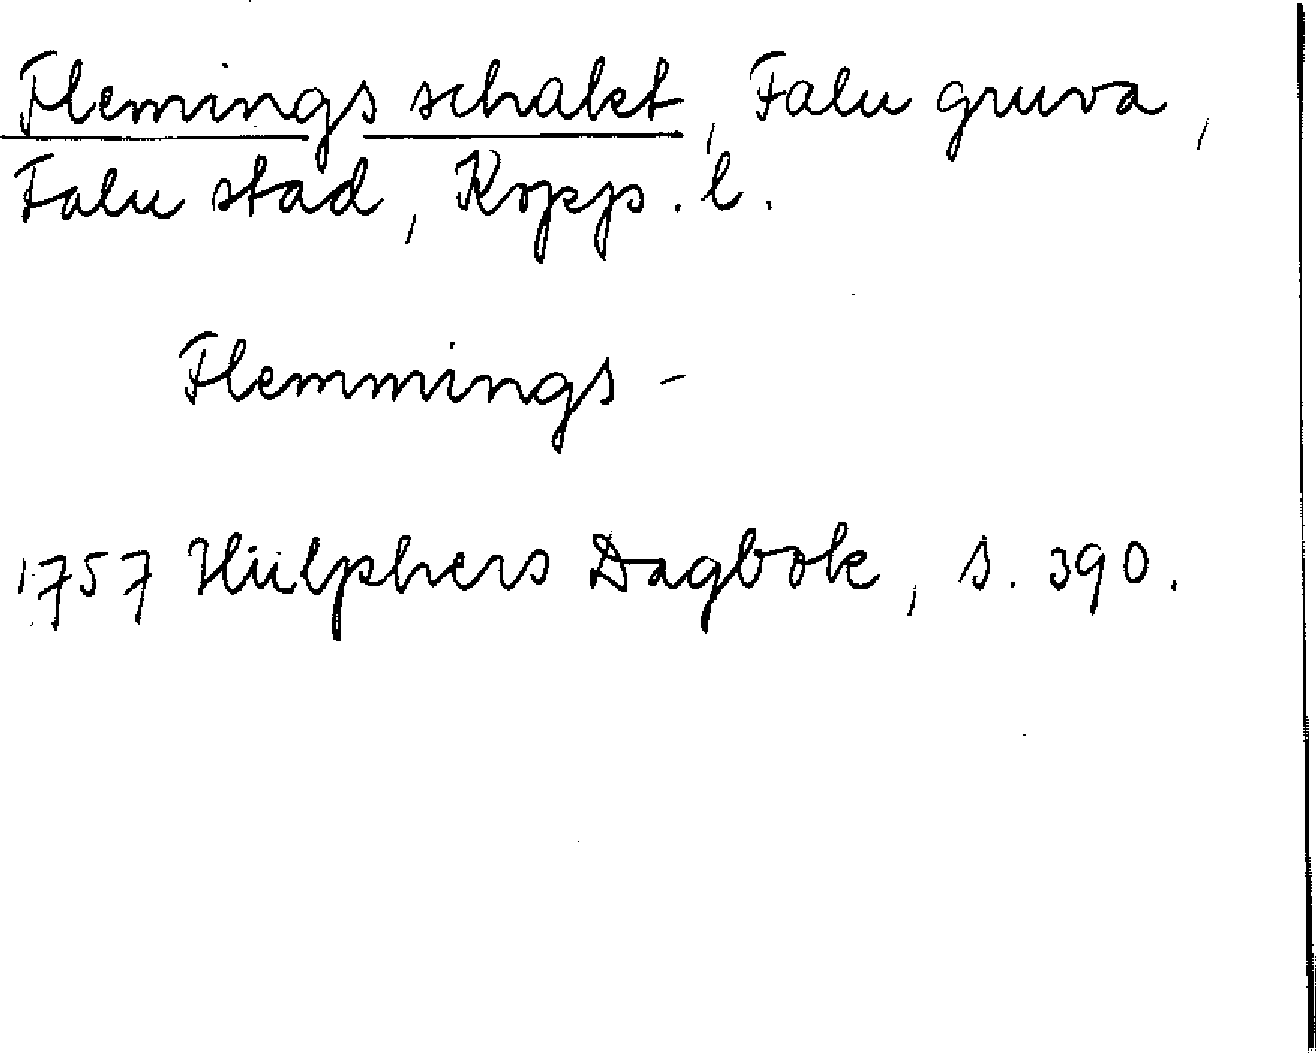 Flemings schakt, Falu gruva,
Falu stad, Kopp. l.
Flemmings -
1757 Hülphers Dagbok, s. 390.